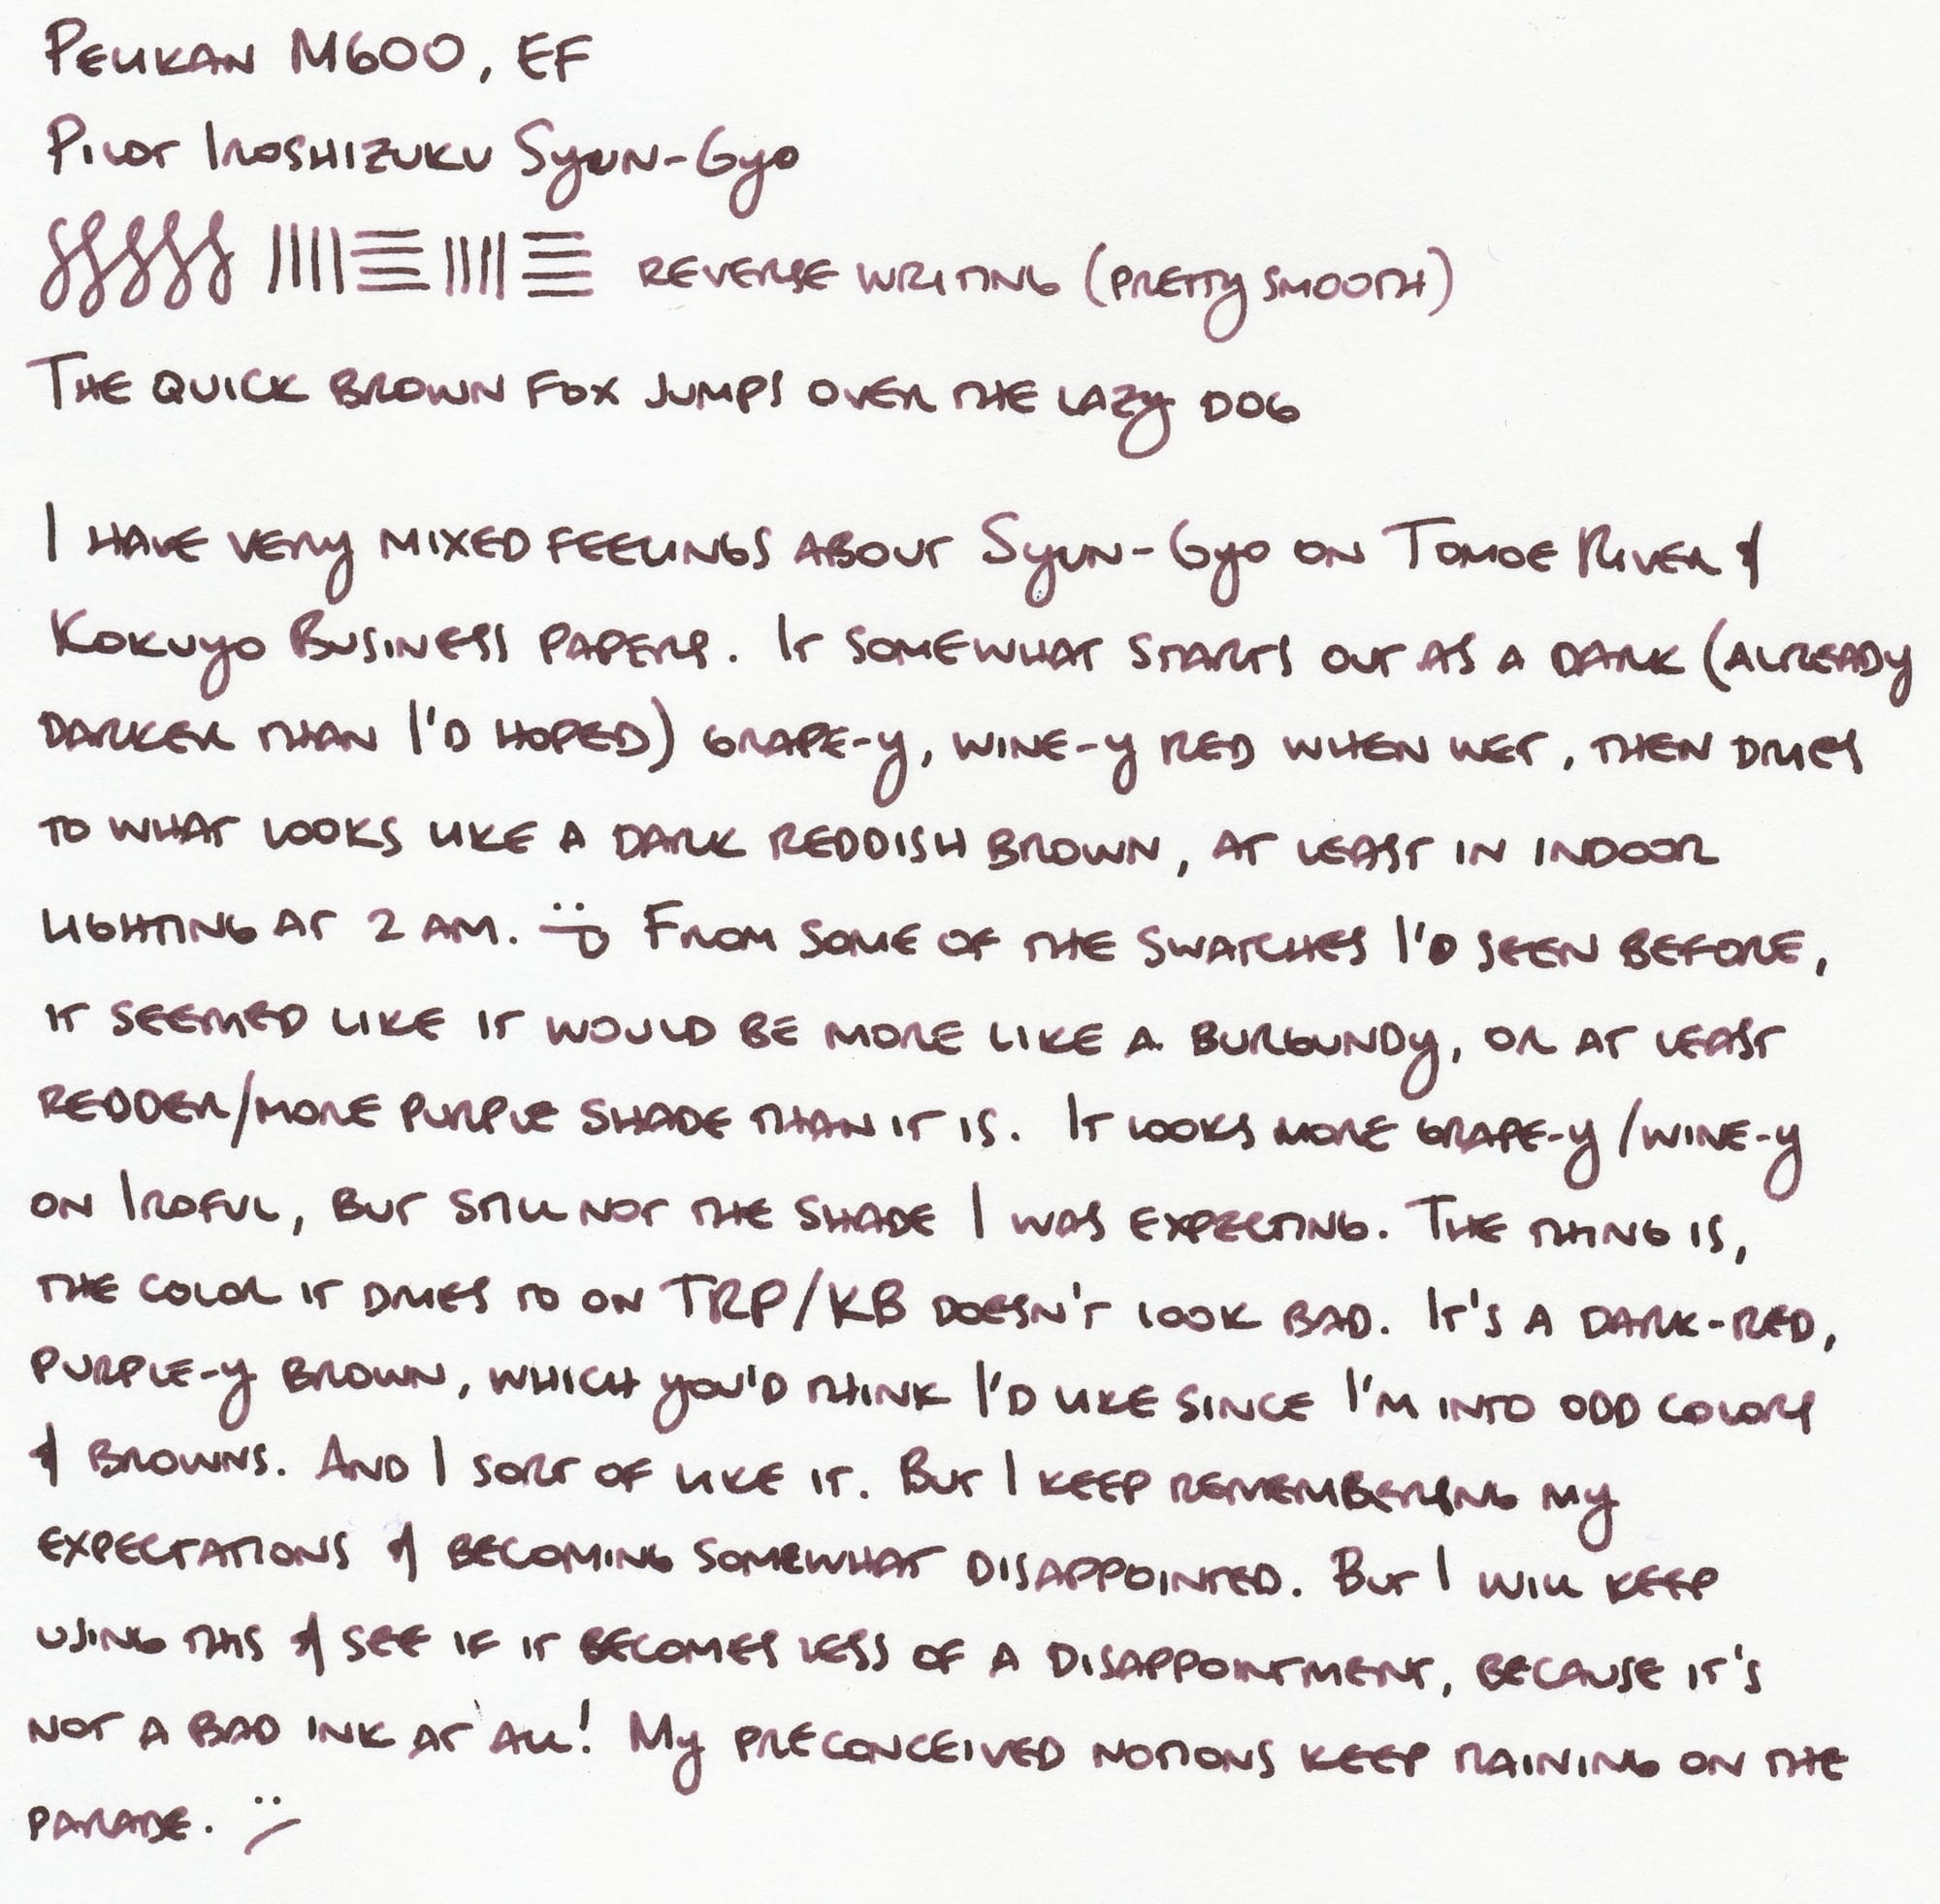 Pelikan M600, EF
Pilot Iroshizuku Syun-Gyo
Reverse writing (pretty smooth)
The quick brown fox jumps over the lazy dog
I have very mixed feelings about Syun-Gyo on Tomoe River &
Kokuyo Business papers. It somewhat starts out as a dark (already
darker than I'd hoped) grape-y, wine-y red when wet, then dries
to what looks like a dark reddish brown, at least in indoor
lighting at 2 am. From some of the swatches I'd seen before,
it seemed like it would be more like a burgundy, or at least
redder/more purple shade than it is. It looks more grape-y/wine-y
on Iroful, but still not the shade I was expecting. The thing is,
the color it dries to on TRP/KB doesn't look bad. It's a dark-red,
purple-y brown, which you'd think I'd like since I'm into odd colors
& browns. And I sort of like it. But I keep remembering my
expectations & becoming somewhat disappointed. But I will keep
using this & see if it becomes less of a disappointment, because it's
not a bad ink at all! My preconceived notions keep raining on the
parade. :/